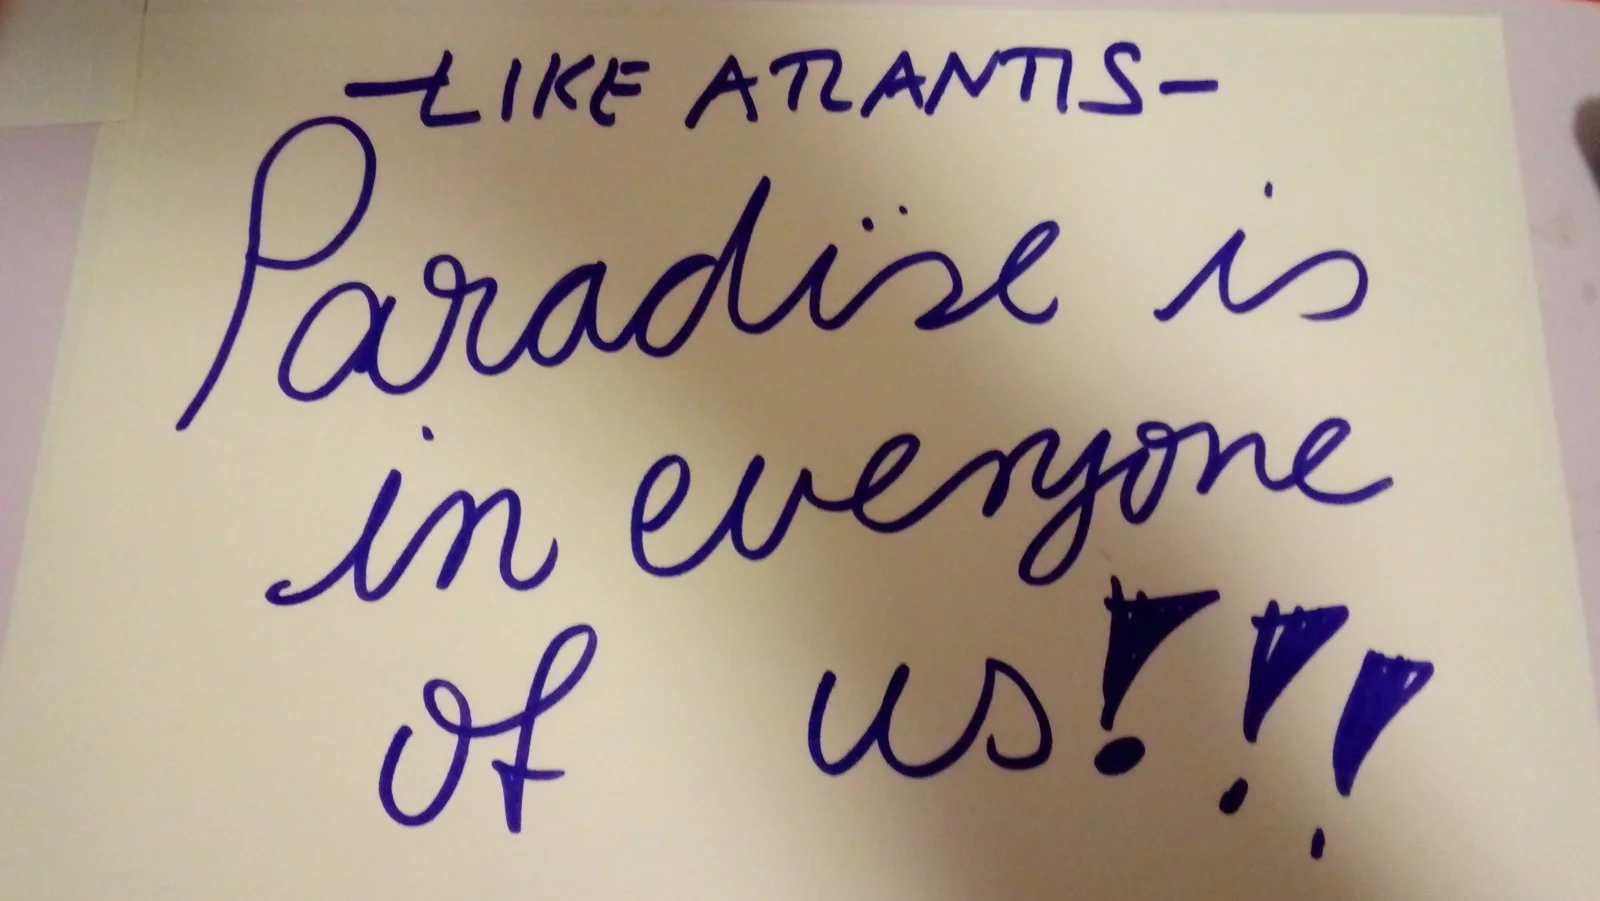 -LIKE ATLANTIS-
Paradïse is
in everyone
of us!!!